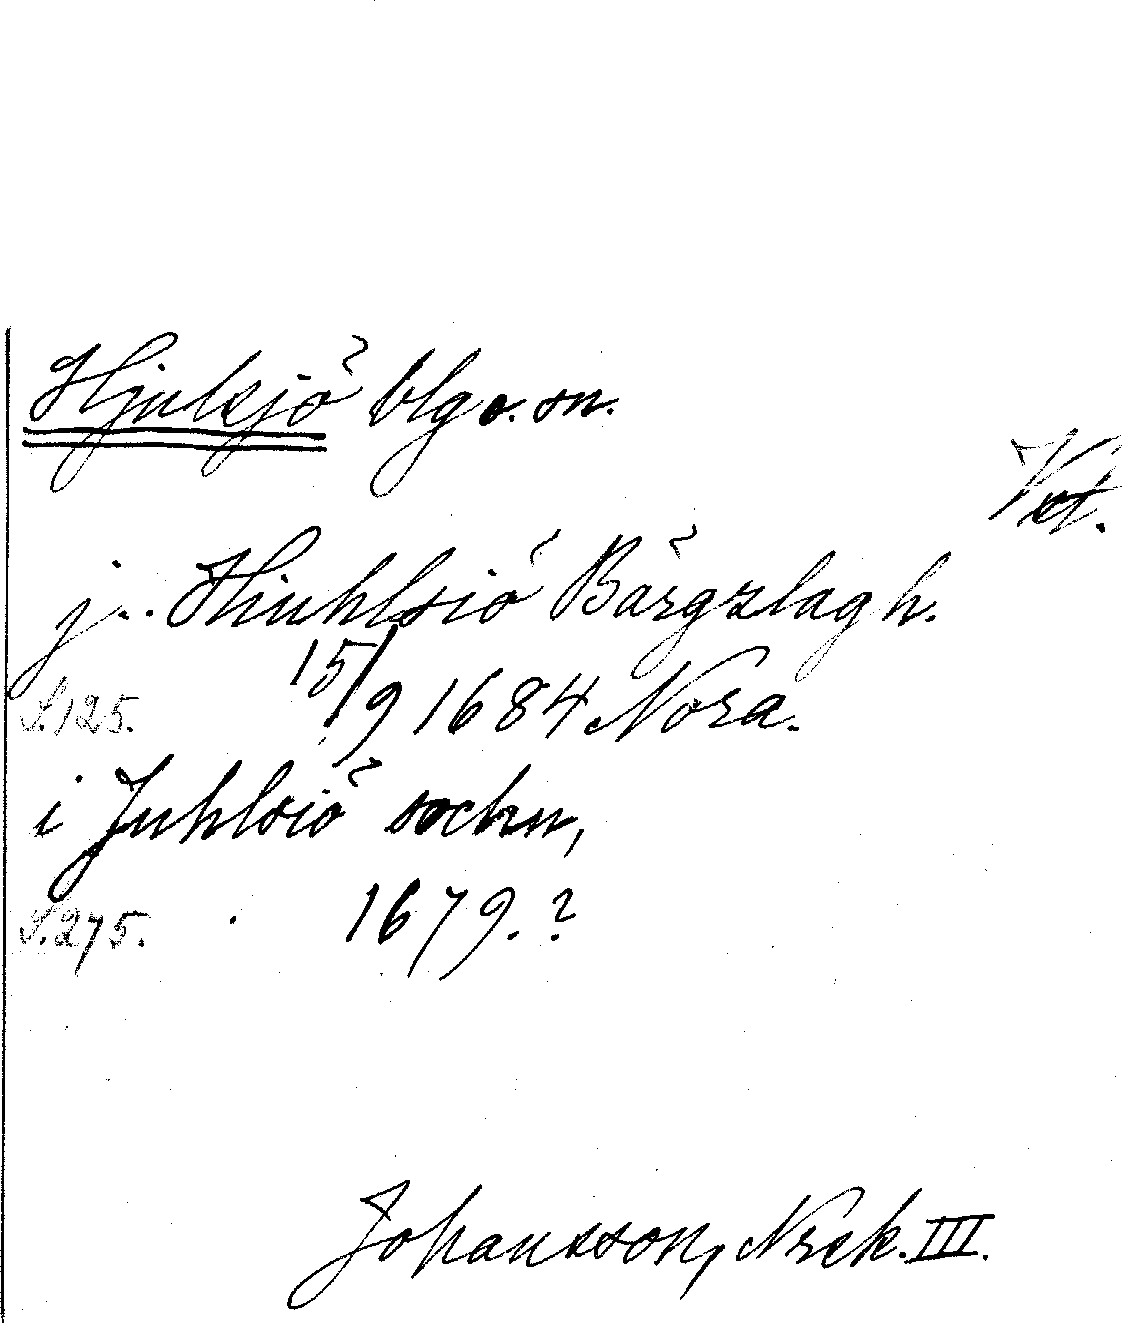 Hjulsjö blg o. sn.
Vst.
j... Hiuhlsiö Bärgzlagh.
15/9 1684 Nora.
S. 125.
i Juhlsiö sochn,
S. 275. 1679.?
Johansson, Nrek. III.